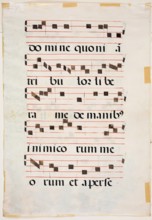 do mi ne quo ni ā
tri bu lor li be
ra me de manibꝰ
inimico rum me
o rum et a perse